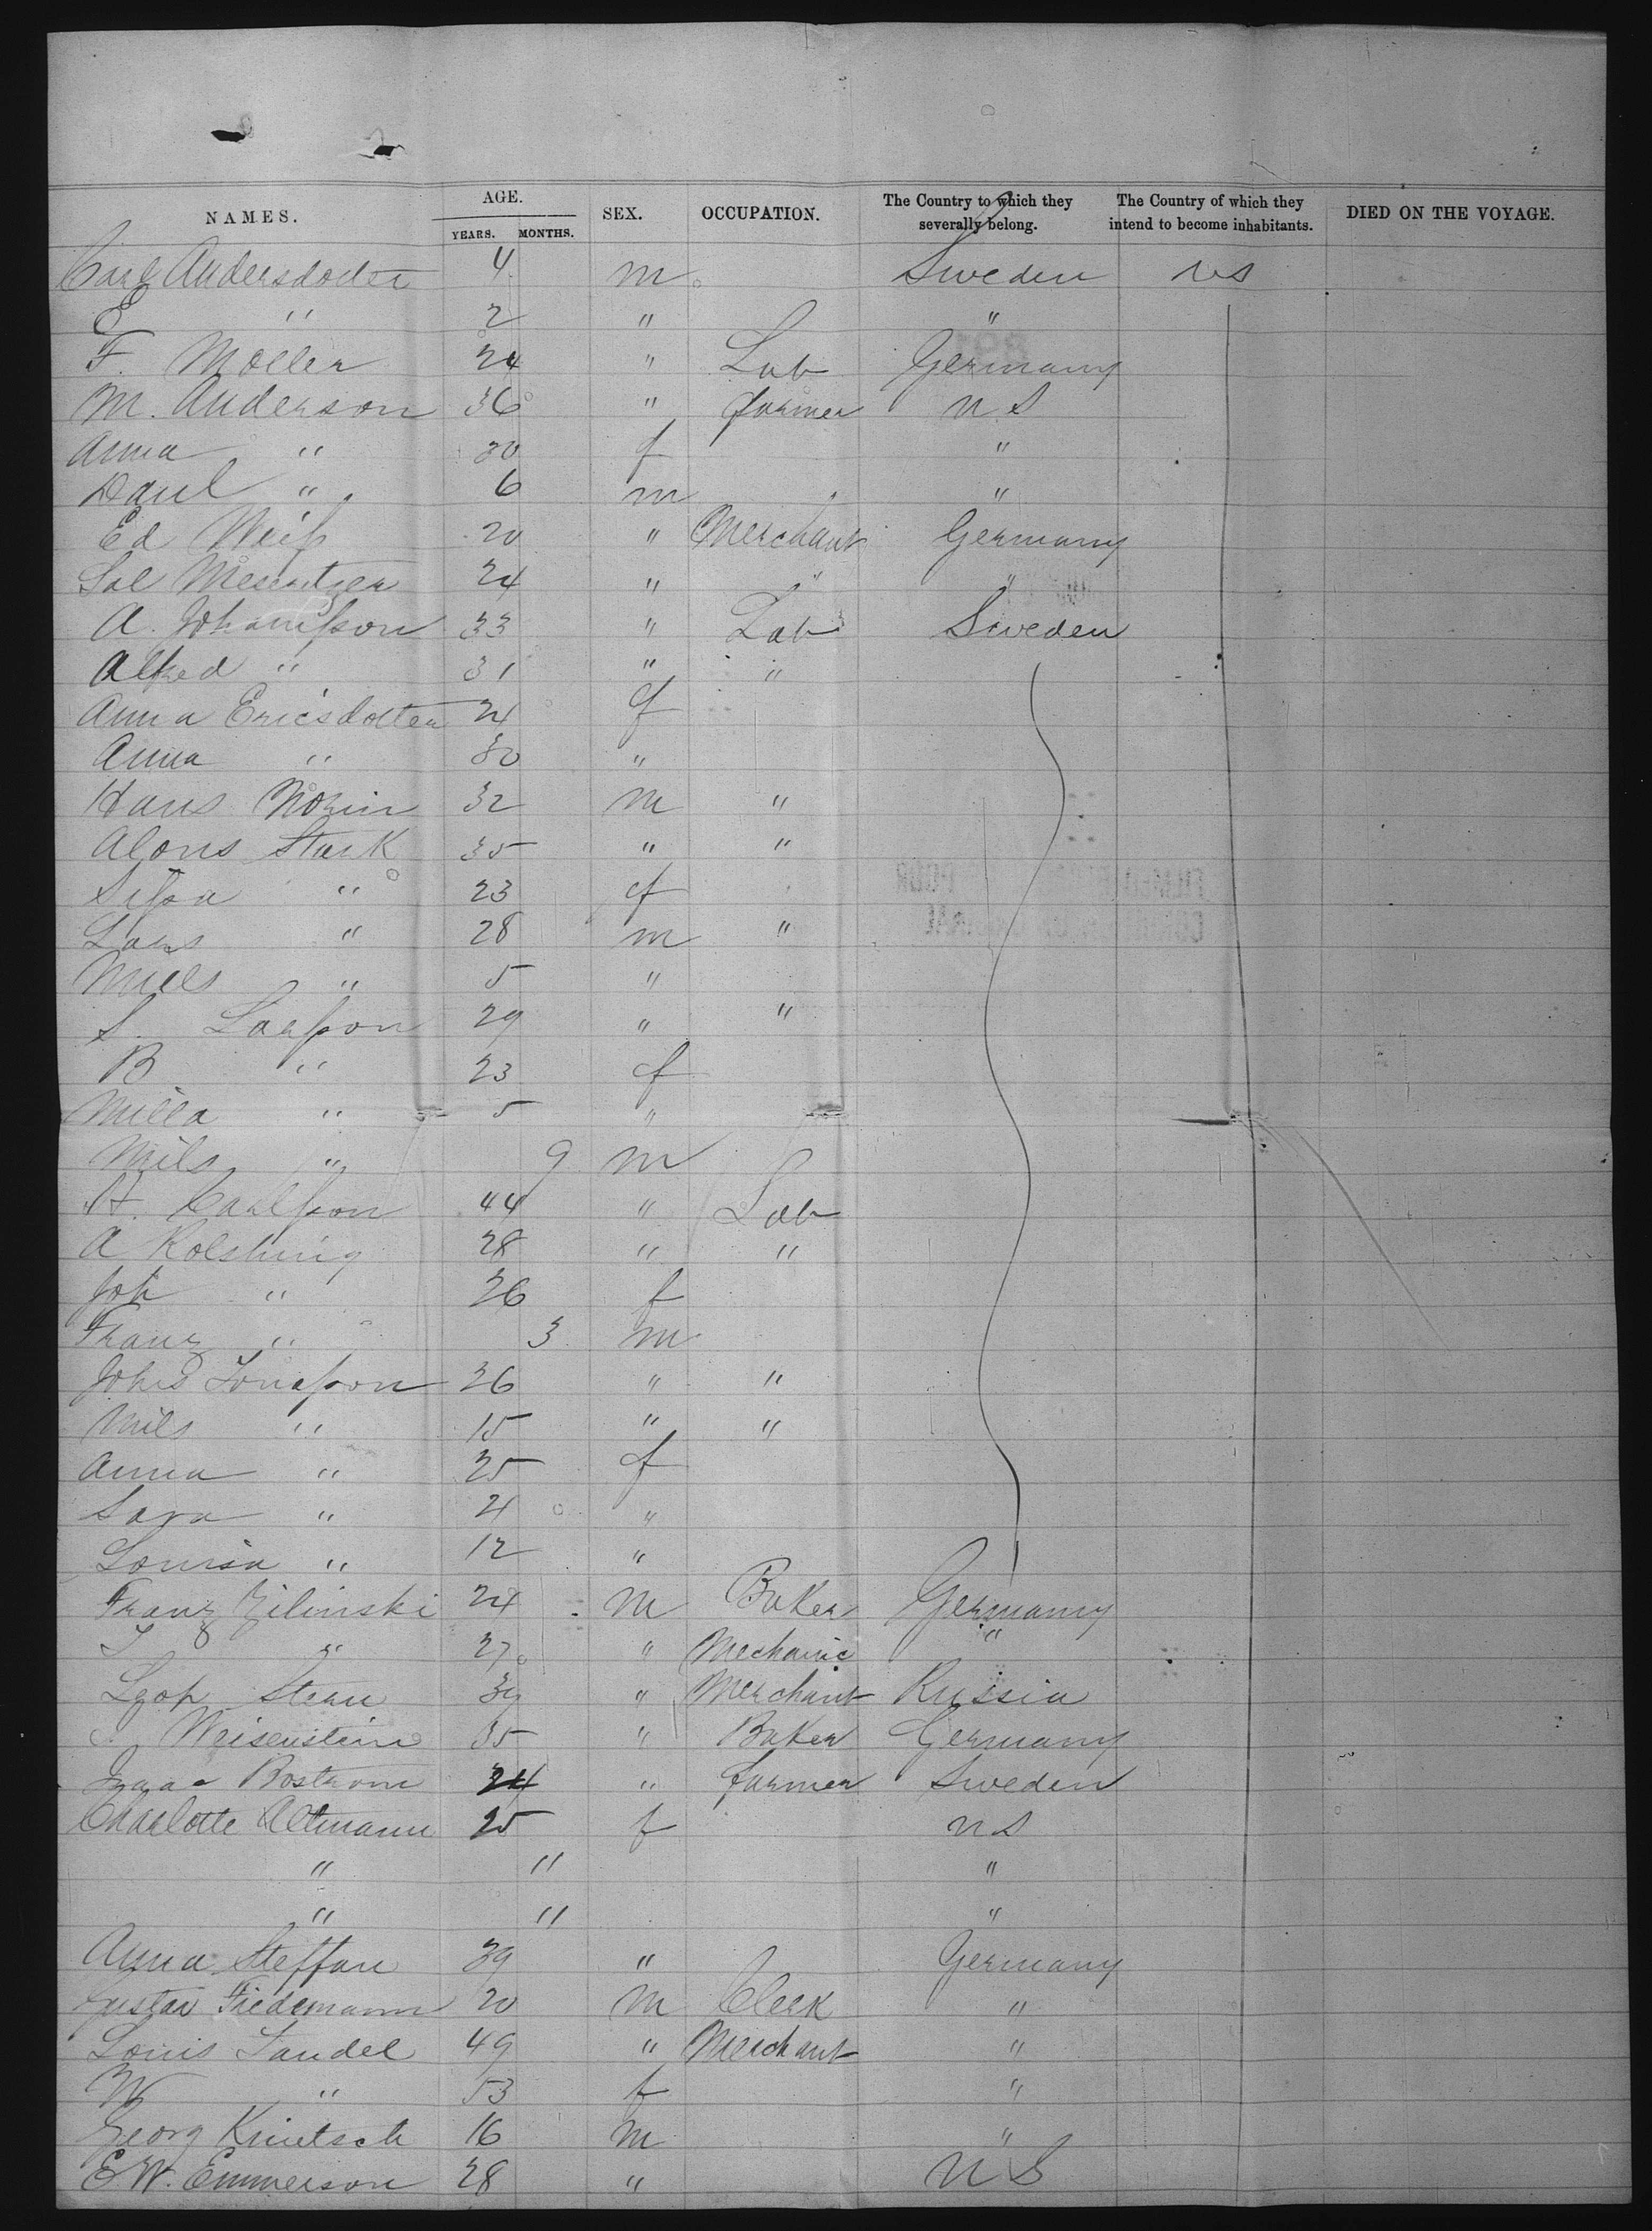 NAMES. AGE. YEARS. MONTHS. SEX. OCCUPATION. The Country to which they severally belong. The Country of which they intend to become inhabitants. DIED ON THE VOYAGE.
Carl Andersdotter 4 m Sweden US
E " 2 " "
F. Moller 24 " Lab Germany
M. Anderson 36 " farmer U S
Anna " 30 f "
" 6 m "
Ed Weiß 20 " Merchant Germany
Sal 24 " " "
A. Johanßon 33 " Lab Sweden
Alfred " 31 " "
Anna Ericsdotter 24 f
Anna " 30 "
Hans Norin 32 m "
Alons Stark 35 " "
Sißa " 23 f
Lars " 28 m "
Niels " 5 "
S. Larßon 29 " "
B " 23 f
Milla " 5 "
Nils " 9 m
A. Carlßon 44 " Lab
A Kolshing 28 " "
Joh " 26 f
Franz " 3 m
Johs Jonaßon 26 " "
Nils " 15 " "
Anna " 25 f
Sara " 21 "
Louisa " 12 "
Franz Zilinski 24 m Baker Germany
J " 27 " Mechanic "
Leop Stern 39 " Merchant Russia
Weisenstein 35 " Baker Germany
Isaac Bostrom 24 " farmer Sweden
Charlotte Altmann 25 f U S
" " "
" " "
Anna Steffan 39 " Germany
Gustav Fiedemann 20 m Clerk "
Louis Landel 49 " Merchant "
W " 53 f "
Georg 16 m "
E W. Emmerson 28 " U S